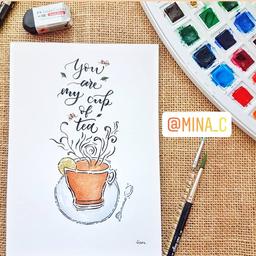 You
are
my cup
of
tea
@MINA_C